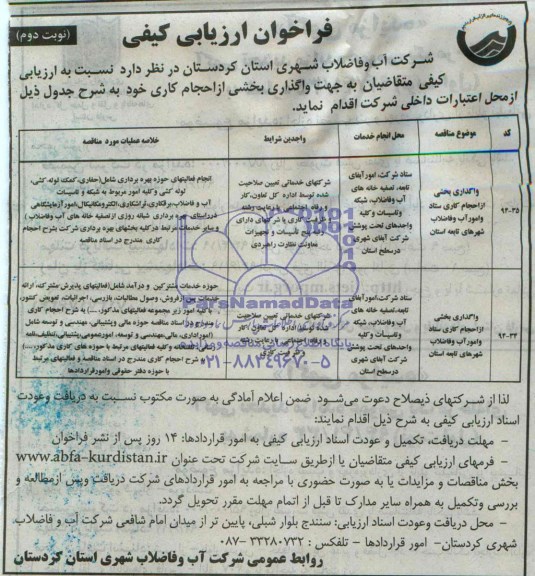 فراخوان ارزیابی کیفی
(نوبت دوم)
شرکت آب وفاضلاب شهری استان کردستان در نظر دارد نسبت به ارزیابی
کیفی متقاضیان به جهت واگذاری بخشی ازاحجام کاری خود به شرح جدول ذیل
ازمحل اعتبارات داخلی شرکت اقدام نماید.
کد
موضوع مناقصه
محل انجام خدمات
واجدین شرایط
خلاصه عملیات مورد مناقصه
۹۲-۳۵
واگذاری بخشی
ازاحجام کاری ستاد
وامور آب وفاضلاب
شهرهای تابعه استان
ستاد شرکت، امور آبفای
تابعه، تصفیه خانه های
آب وفاضلاب، شبکه
وتاسیسات وکلیه
واحدهای تحت پوشش
شرکت آبفای شهری
درسطح استان
شرکتهای خدماتی تعیین صلاحیت
شده توسط اداره کل تعاون،کار
و رفاه اجتماعی با رعایت رشته
و ظرفیت کاری یا شرکتهای دارای
تاسیسات و تجهیزات
معاونت نظارت راهبردی
انجام فعالیتهای حوزه بهره برداری شامل(حفاری، کمک لوله کشی،
لوله کشی وکلیه امور مربوط به شبکه و تاسیسات
آب وفاضلاب،برقکاری،تراشکاری،الکترومکانیکال،امور آزمایشگاهی
درراستای بهره برداری شبانه روزی ازتصفیه خانه های آب وفاضلاب )
و سایر خدمات مرتبط در کلیه بخشهای بهره برداری شرکت بشرح احجام
کاری مندرج در اسناد مناقصه
واگذاری بخشی
ازاحجام کاری ستاد
وامور آب وفاضلاب
شهرهای تابعه استان
ستاد شرکت،امور آبفای
تابعه، تصفیه خانه های
آب وفاضلاب، شبکه
وتاسیسات وکلیه
واحدهای تحت پوشش
شرکت آبفای شهری
درسطح استان
شرکتهای خدماتی تعیین صلاحیت
شده توسط اداره کل تعاون ،کار
حوزه خدمات مشترکین و درآمد شامل(فعالیتهای پذیرش مشترک، ارائه
خدمات پس ازفروش، وصول مطالبات، بازرسی، اجرائیات، تعویض کنتور،
کلیه امور زیر مجموعه فعالیتهای مذکور، ....) به شرح احجام کاری
مندرج در اسناد مناقصه حوزه مالی وپشتیبانی، مهندسی و توسعه شامل
(امور اداری، مالی،مهندسی و توسعه، امور عمومی،پشتیبانی،
وکلیه فعالیتهای مرتبط با حوزه های کاری مذکور، ....)
به شرح احجام کاری مندرج در اسناد مناقصه و فعالیتهای مرتبط
با حوزه دفتر حقوقی وامور قراردادها
ParsNamadData
۰۲۱-۸۸۳۴۹۶۷۰-۵
لذا از شرکتهای ذیصلاح دعوت می شود ضمن اعلام آمادگی به صورت مکتوب نسبت به دریافت وعودت
اسناد ارزیابی کیفی به شرح ذیل اقدام نمایند:
- مهلت دریافت، تکمیل و عودت اسناد ارزیابی کیفی به امور قراردادها: ۱۴ روز پس از نشر فراخوان
- فرمهای ارزیابی کیفی متقاضیان یا ازطریق سایت شرکت تحت عنوان www.abfa-kurdistan.ir
بخش مناقصات و مزایدات یا به صورت حضوری با مراجعه به امور قراردادهای شرکت دریافت وپس ازمطالعه و
بررسی وتکمیل به همراه سایر مدارک تا قبل از اتمام مهلت مقرر تحویل گردد.
- محل دریافت وعودت اسناد ارزیابی: سنندج بلوار شبلی، پایین تر از میدان امام شافعی شرکت آب و فاضلاب
شهری کردستان- امور قراردادها - تلفکس : ۳۳۲۸۰۷۳۲ -۰۸۷
روابط عمومی شرکت آب وفاضلاب شهری استان کردستان